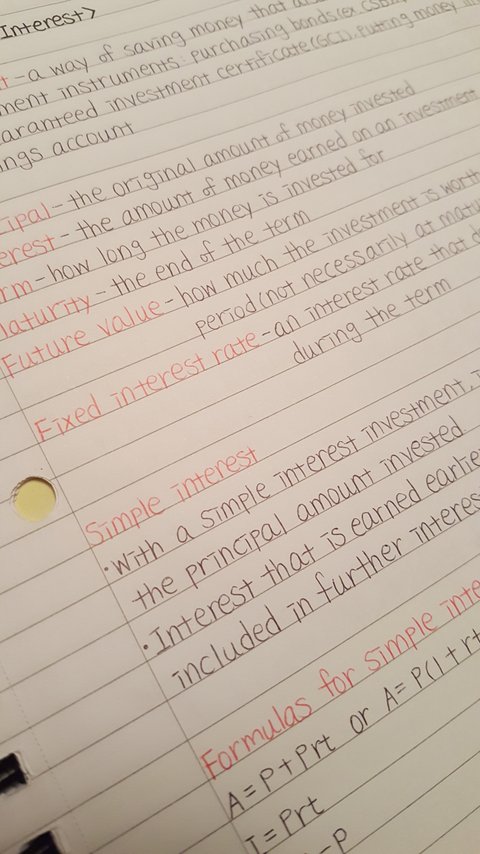 Interest>
- a way of saving money that
ment instruments: purchasing bonds (ex. CSB),
guaranteed investment certificate (GIC), putting money
ings account
cipal - the original amount of money invested
erest - the amount of money earned on an investment
rm - how long the money is invested for
maturity - the end of the term
Future value - how much the investment is worth
period (not necessarily at matu
Fixed interest rate - an interest rate that d
during the term
Simple interest
• With a simple interest investment,
the principal amount invested.
• Interest that is earned earlie
included in further interes
Formulas for simple inte
A = P + Prt or A = P(1 + rt
I = Prt
- P